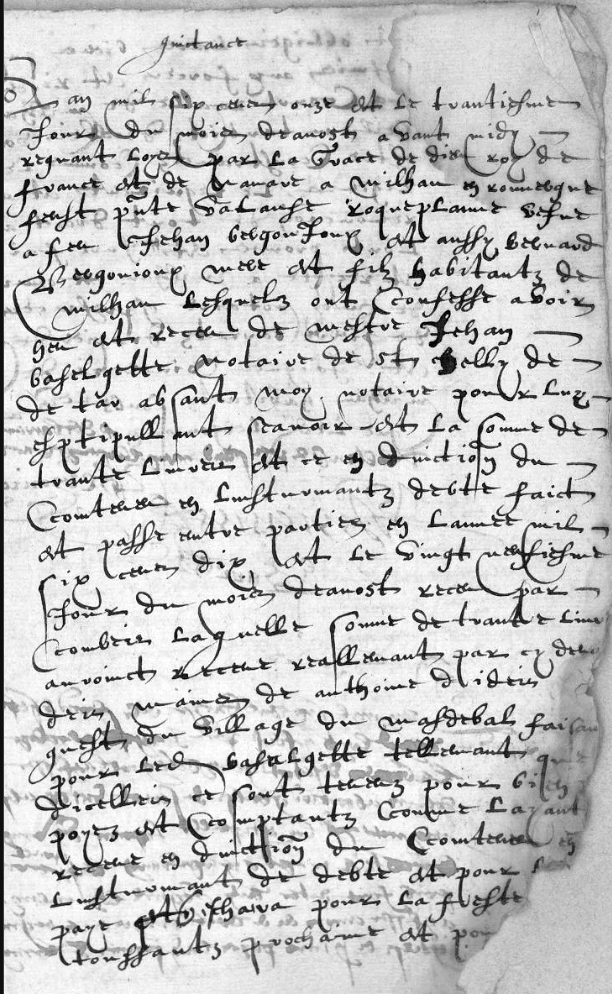 quictance
Lan mil six cens onze et le trantiesme
jour du moies deaoust avant midy
regnant Loys par la grace de dieu roy de
france et de navare a milhau en rouuergue
feust pnte valanse roqueplanne vefue
a feu Jehan bergonhoux et aussy bernard
Bergonioux mere et filz habitantz de
milhau lesquelz ont confesse avoir
heu et receu de mestre Jehan
baselgette notaire de st Relly de
de tar absant moy notaire pour luy
esptipullant scavoir est la somme de
trante livres et ce en dinction du
conteneu en linsturmantz debte faict
et passe entre parties en lannee mil
six cens dix et le vingt neufiesme
jour du moies deaoust receu par
combeis laquelle somme de trante livres
receue reallemant par cy deva
deis mames de anthoine dideis
du village du masdebal faisan
pour led baselgette tellemant que
dicelleis ce sont teneus pour bien
poyes et comptantz comme layant
receue en dinction du conteneu en
linsturmant de debte et pour
paye pour la feste
toussantz prochaine et pou